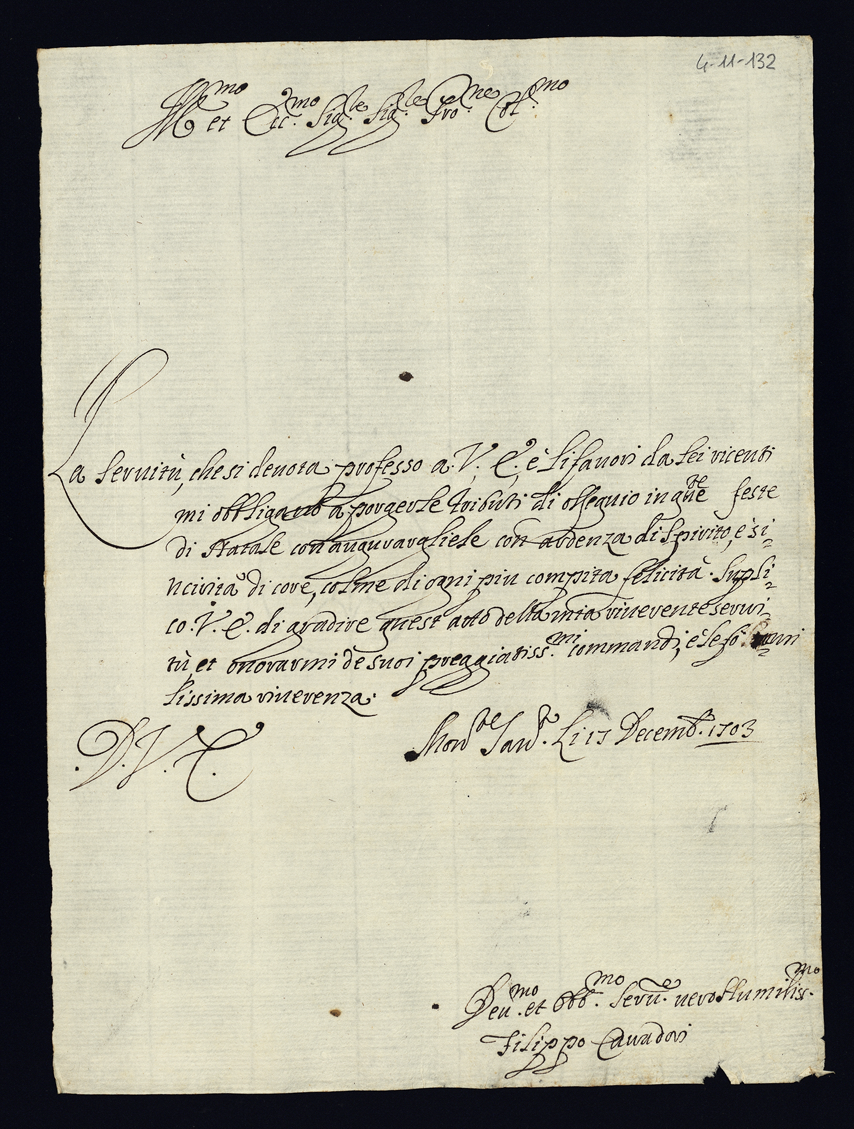 4-11-132
Ill.mo et Ecc.mo Sig.le Sig.le Pro.ne Col.mo
La servitù, che si devota professo a V. E. è li favori da lei ricenti
mi obbligano a porgerle tributi di ossequio in q.te feste
di Natale con augurargliele con ardenza di spirito, è si=
ncirità di core, colme di ogni piu compita felicità. Suppli=
co. V. E. di gradire quest atto della mia riverente servi=
tù et onorarmi de suoi preggiatiss.mi commandi, è le fò
lissima riverenza.
D. V. E.
Li 17 Decemb. 1703
Dev.mo et Obb.mo Serv.e vero Humiliss.mo
Filippo Cavadori